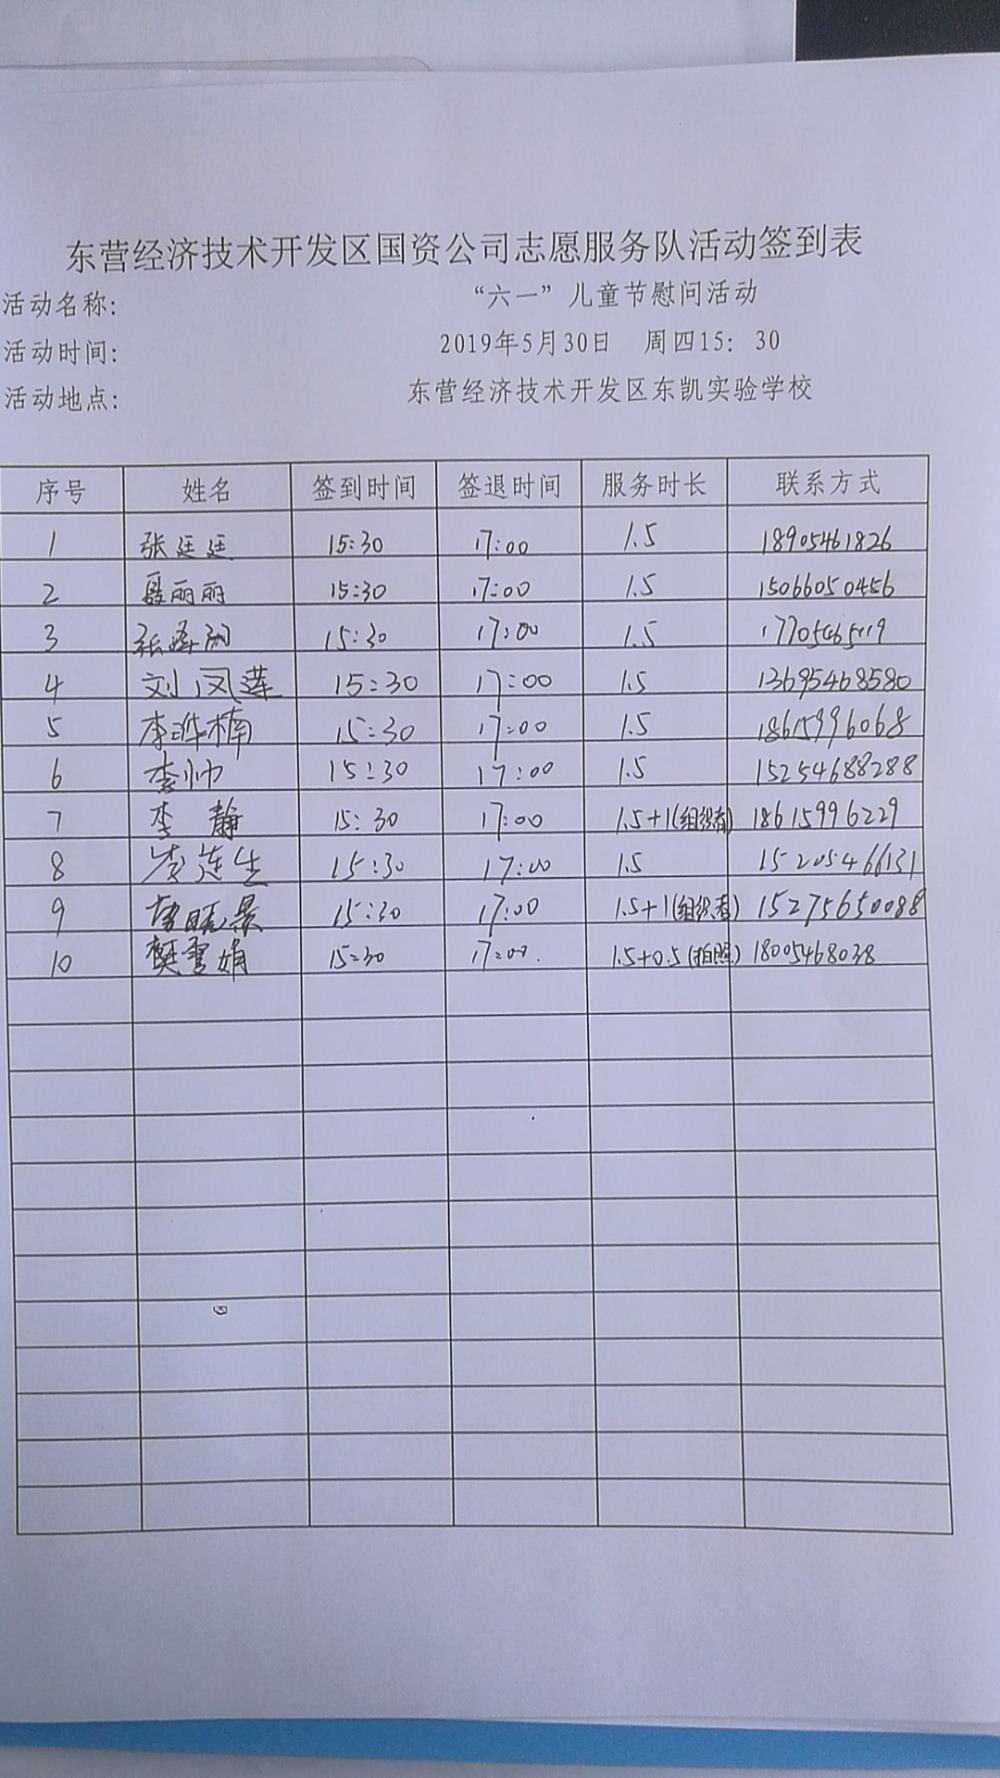 东营经济技术开发区国资公司志愿服务队活动签到表
活动名称: “六一”儿童节慰问活动
活动时间: 2019年5月30日 周四15: 30
活动地点: 东营经济技术开发区东凯实验学校
序号 姓名 签到时间 签退时间 服务时长 联系方式
1 张廷廷 15:30 17:00 1.5 18905461826
2 聂丽丽 15:30 17:00 1.5 15066050456
3 15:30 17:00 1.5
4 刘凤莲 15:30 17:00 1.5 13695468580
5 15:30 17:00 1.5 18615996068
6 李帅 15:30 17:00 1.5 15254688288
7 李静 15:30 17:00 1.5+1(组织者) 18615996229
8 李连生 15:30 17:00 1.5 15205466131
9 15:30 17:00 1.5+1(组织者) 15275650088
10 樊雪娟 15:30 17:00. 1.5+0.5(拍照) 18005468038